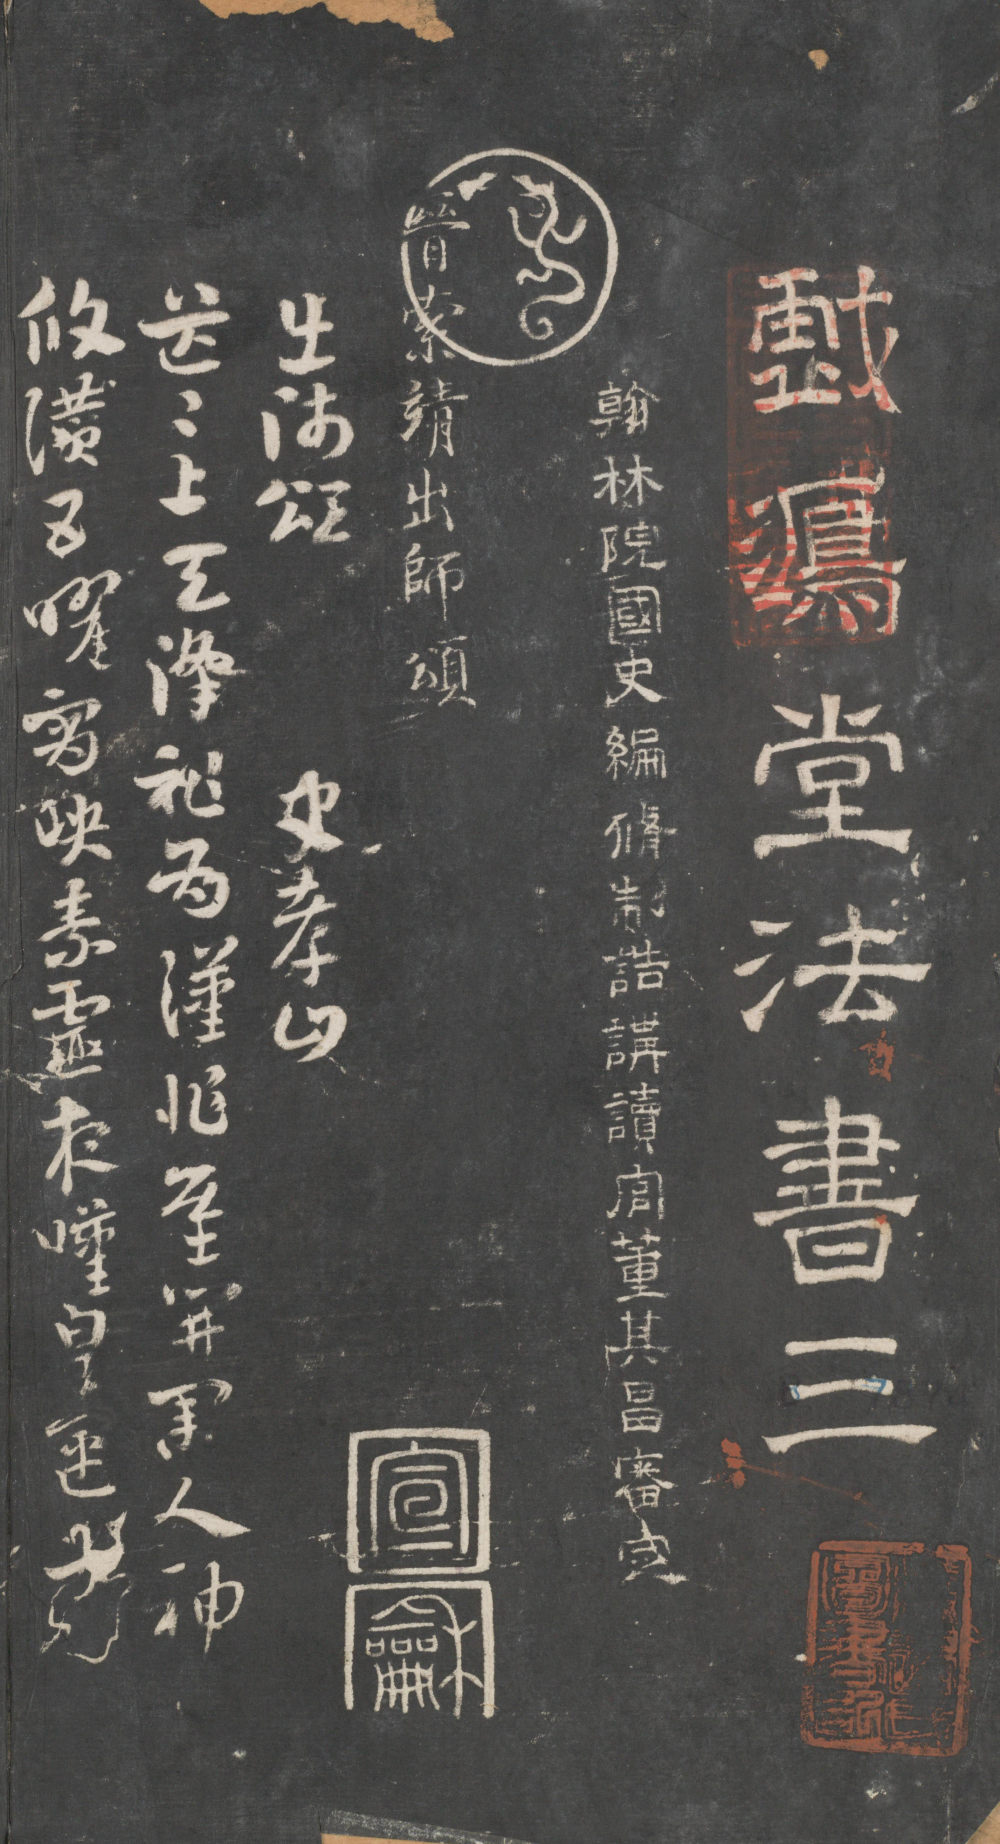 戲鴻堂法書三
翰林院國史編脩制誥講讀官董其昌審定
晉索靖出師頌
宣
龢
出師頌 史孝山
茫〻上天降祚爲漢作基開業人神
攸讚五曜霄映素靈夜嘆皇運